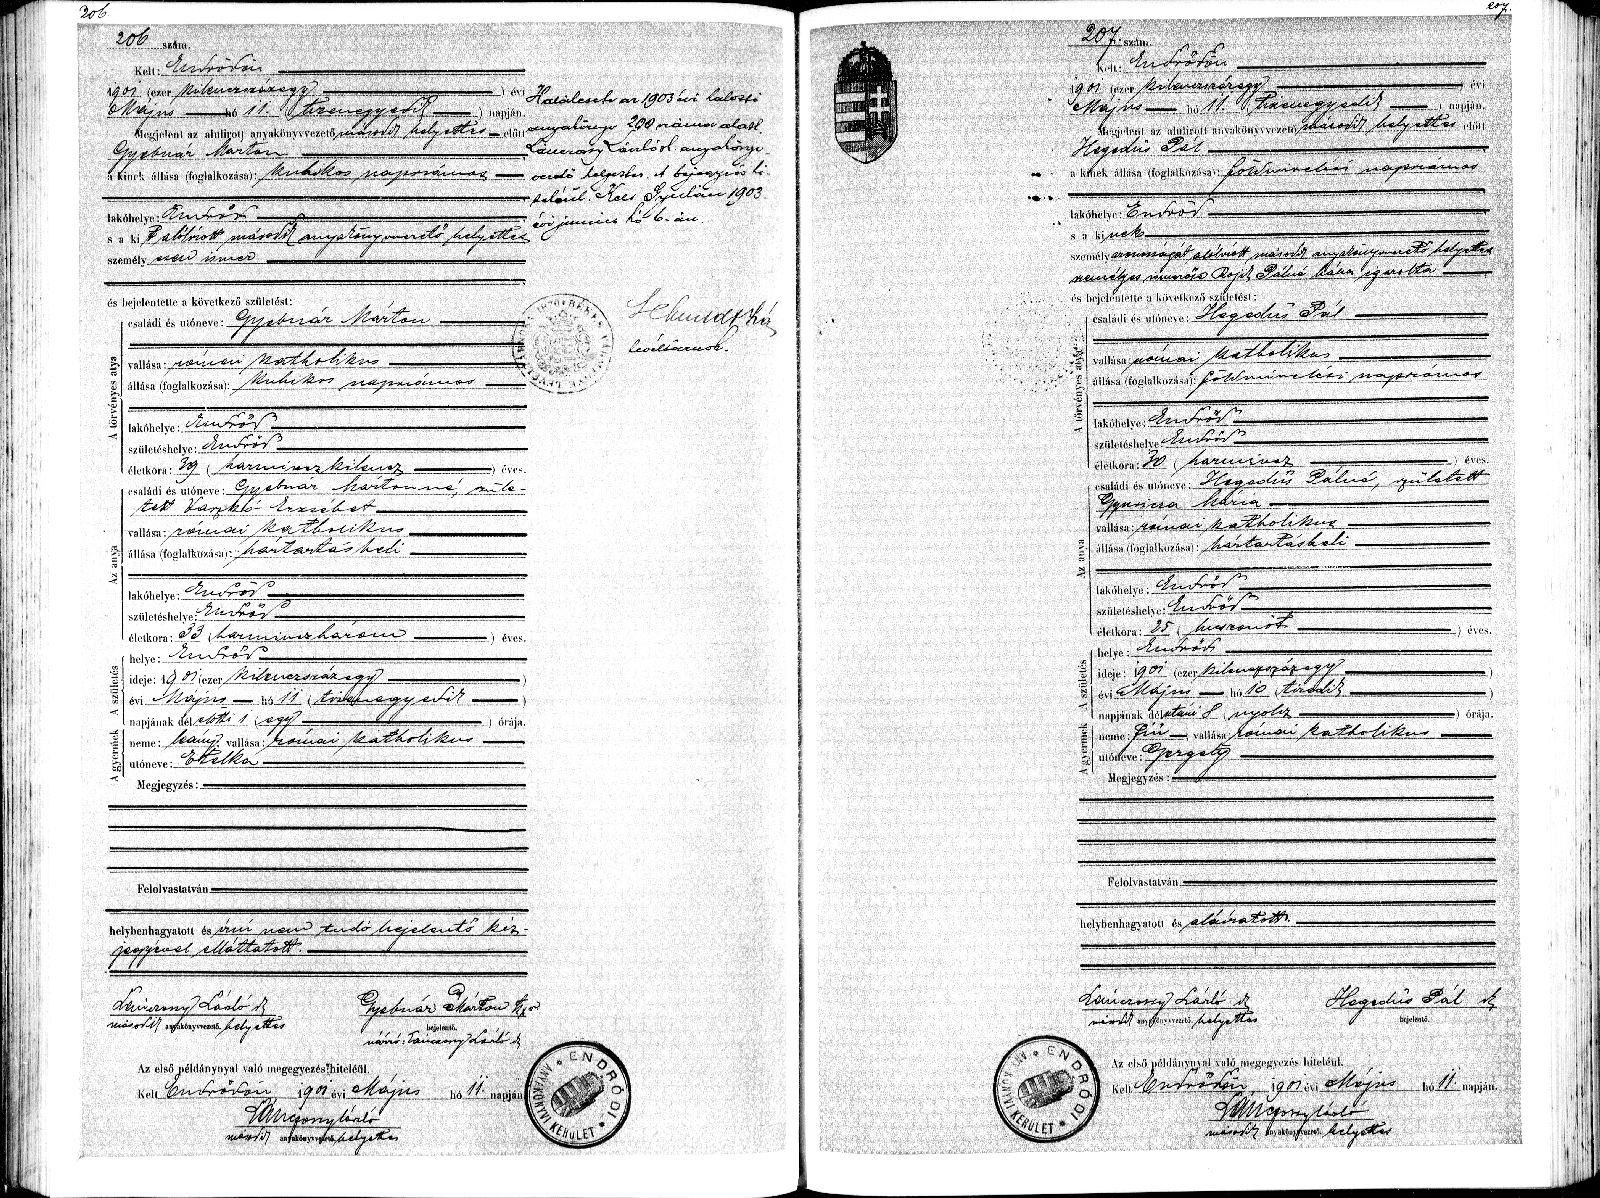 206.
206 szám.
Kelt: Endrődön
1901 (ezer kilenczszázegy) évi
Május hó 11. (tizenegyedik) napján.
Megjelent az alulirott anyakönyvvezető második helyettes előtt
Gyebnár Márton
a kinek állása (foglalkozása): kubikos napszámos
lakóhelye: Endrőd
s a kit alólirott második anyakönyvvezető helyettes
személyesen ismer
és bejelentette a következő születést:
A törvényes atya
családi és utóneve: Gyebnár Márton
vallása: római katholikus
állása (foglalkozása): kubikos napszámos
lakóhelye: Endrőd
születéshelye: Endrőd
életkora: 39 (harminczkilencz) éves.
Az anya
családi és utóneve: Gyebnár Mártonné, szüle-
tett Vaszkó Erzsébet
vallása: római katholikus
állása (foglalkozása): háztartásbeli
lakóhelye: Endrőd
születéshelye: Endrőd
életkora: 33 (harminczhárom) éves.
A születés
helye: Endrőd
ideje: 1901 (ezer kilenczszázegy)
évi Május hó 11 (tizenegyedik)
napjának délelőtti 1 (egy) órája.
A gyermek
neme: leány, vallása: római katholikus
utóneve: Etelka
Megjegyzés:
Felolvastatván
helybenhagyatott és irni nem tudó bejelentő kéz-
jegyével elláttatott.
Lánczony László sk Gyebnár Márton kzx
második anyakönyvvezető helyettes bejelentő.
Lánczony László sk
Az első példánynyal való megegyezés hiteléül.
Kelt Endrődön 1901 évi Május hó 11. napján
Lánczony László
második anyakönyvvezető helyettes
ENDRŐDI ANYAKÖNYVI KERÜLET
Halálesete az 1903 évi halotti
anyakönyv 200 száma alatt.
Lánczony László sk. anyakönyv-
vezető helyettes. A bejegyzés hi-
teléül. Kelt Gyulán 1903
évi junius hó 6-án.
levéltárnok.
207.
207. szám.
Kelt: Endrődön
1901 (ezer kilenczszázegy) évi
Május hó 11. (tizenegyedik) napján.
Megjelent az alulirott anyakönyvvezető második helyettes előtt
Hegedüs Pál
a kinek állása (foglalkozása): földmivelési napszámos
lakóhelye: Endrőd
s a kinek
személyazonosságát alólirott második anyakönyvvezető helyettes
személyes ismerőse Pálné bába igazolta
és bejelentette a következő születést:
A törvényes atya
családi és utóneve: Hegedüs Pál
vallása: római katholikus
állása (foglalkozása): földmivelési napszámos
lakóhelye: Endrőd
születéshelye: Endrőd
életkora: 30 (harmincz) éves.
Az anya
családi és utóneve: Hegedüs Pálné, született
Mária
vallása: római katholikus
állása (foglalkozása): háztartásbeli
lakóhelye: Endrőd
születéshelye: Endrőd
életkora: 25 (huszonöt) éves.
A születés
helye: Endrőd
ideje: 1901 (ezer kilenczszázegy)
évi Május hó 10 (tizedik)
napjának délutáni 8 (nyolcz) órája.
A gyermek
neme: fiú, vallása: római katholikus
utóneve: Gergely
Megjegyzés:
Felolvastatván
helybenhagyatott és aláiratott.
Lánczony László sk Hegedüs Pál sk
második anyakönyvvezető helyettes bejelentő.
Az első példánynyal való megegyezés hiteléül.
Kelt Endrődön 1901 évi Május hó 11. napján
Lánczony László
második anyakönyvvezető helyettes
ENDRŐDI ANYAKÖNYVI KERÜLET